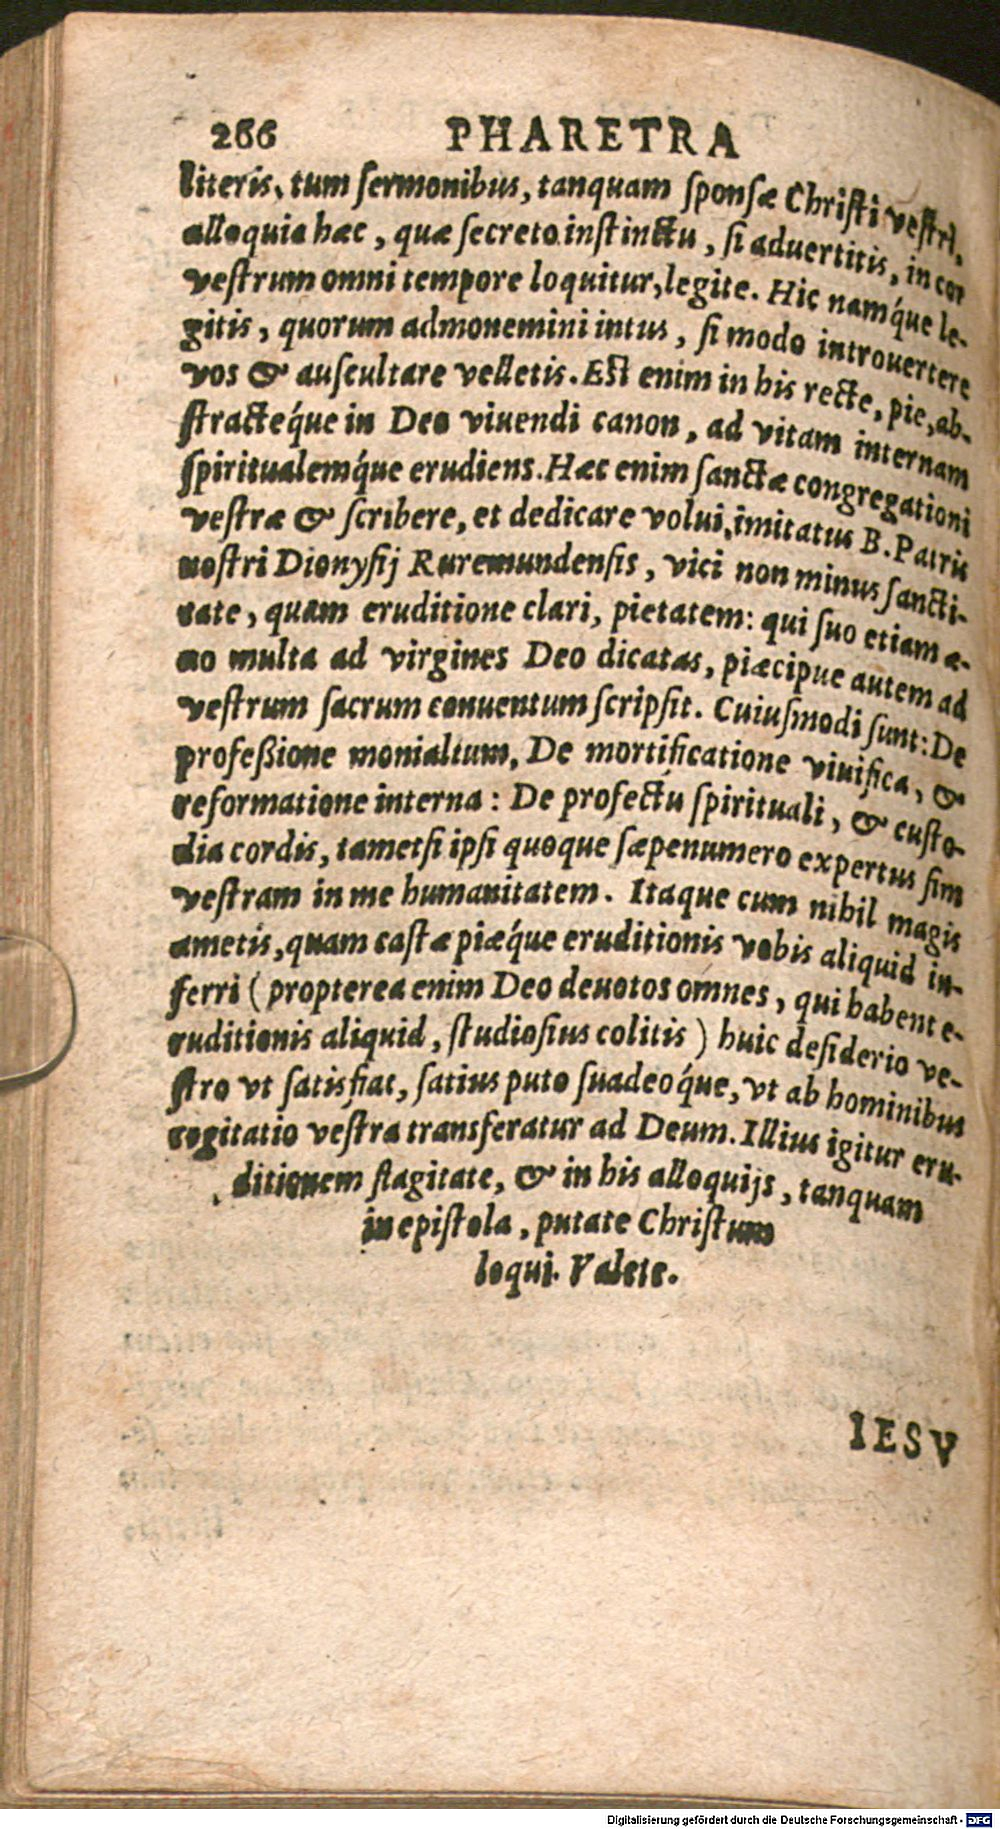 266 PHARETRA
literis, tum ſermonibus, tanquam ſponſæ Chriſti veſtri,
alloquia hæc, quæ ſecreto inſtinctu, ſi aduertitis, in cor
veſtrum omni tempore loquitur, legite. Hic namq́ue le-
gitis, quorum admonemini intus, ſi modo introuertere
vos & auſcultare velletis. Eſt enim in his recte, pie, ab-
ſtracteq́ue in Deo viuendi canon, ad vitam internam
ſpiritualemq́ue erudiens. Hæc enim ſanctæ congregationi
veſtræ & ſcribere, et dedicare volui, imitatus B. Patris
noſtri Dionyſij Ruremundenſis, vici non minus ſancti-
tate, quam eruditione clari, pietatem: qui ſuo etiam æ-
uo multa ad virgines Deo dicatas, præcipue autem ad
veſtrum ſacrum conuentum ſcripſit. Cuiuſmodi ſunt: De
profeßione monialium, De mortificatione viuifica, &
reformatione interna: De profectu ſpirituali, & cuſto-
dia cordis, tametſi ipſi quoque ſæpenumero expertus ſim
veſtram in me humanitatem. Itaque cum nihil magis
ametis, quam caſtæ piæq́ue eruditionis vobis aliquid in-
ferri (propterea enim Deo deuotos omnes, qui habent e-
ruditionis aliquid, ſtudioſius colitis) huic deſiderio ve-
ſtro vt ſatisfiat, ſatius puto ſuadeoq́ue, vt ab hominibus
cogitatio veſtra transferatur ad Deum. Illius igitur eru-
ditionem flagitate, & in his alloquijs, tanquam
in epiſtola, putate Chriſtum
loqui. Valete.
IESV
Digitalisierung gefördert durch die Deutsche Forschungsgemeinschaft - DFG